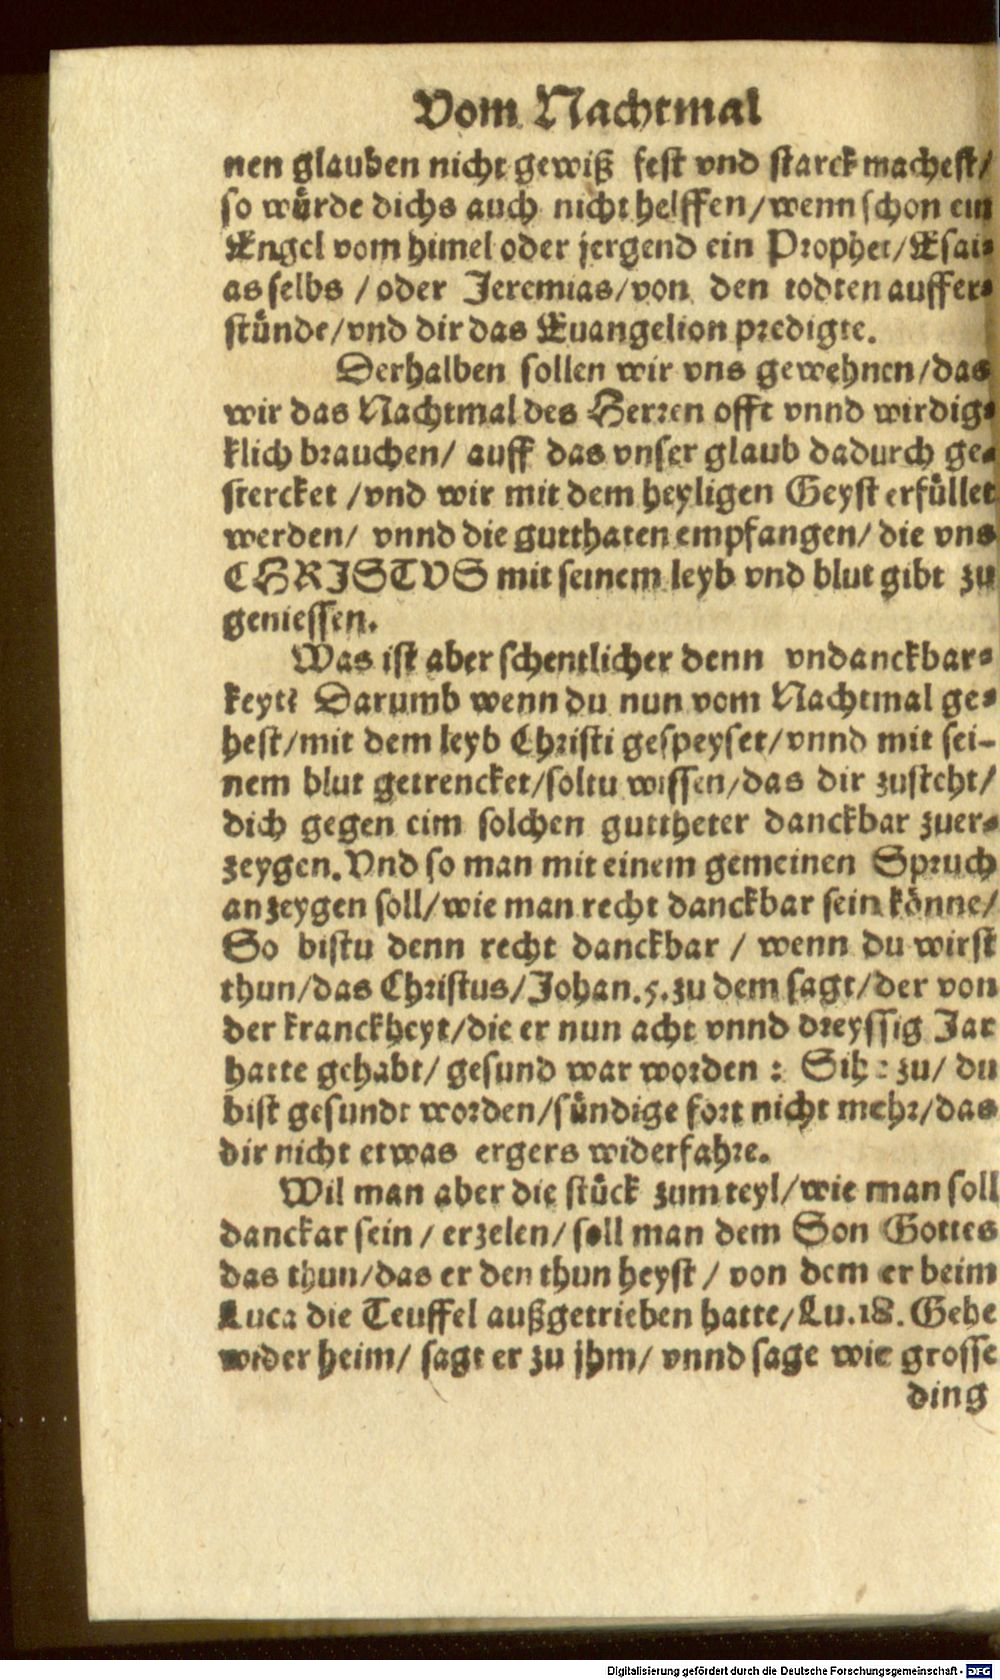 Vom Nachtmal
nen glauben nicht gewiß fest vnd starck machest/
so würde dichs auch nicht helffen/wenn schon ein
Engel vom himel oder jergend ein Prophet/Esai⸗
as selbs /oder Jeremias/von den todten auffer⸗
stünde/vnd dir das Euangelion predigte.
Derhalben sollen wir vns gewehnen/das
wir das Nachtmal des Herren offt vnnd wirdig⸗
klich brauchen/ auff das vnser glaub dadurch ge⸗
stercket /vnd wir mit dem heyligen Geyst erfüllet
werden/ vnnd die gutthaten empfangen/ die vns
CHRISTVS mit seinem leyb vnd blut gibt zu
geniessen.
Was ist aber schentlicher denn vndanckbar⸗
keyt? Darumb wenn du nun vom Nachtmal ge⸗
hest/mit dem leyb Christi gespeyset/vnnd mit sei-
nem blut getrencket/soltu wissen/das dir zusteht/
dich gegen eim solchen guttheter danckbar zuer⸗
zeygen. Vnd so man mit einem gemeinen Spruch
anzeygen soll/wie man recht danckbar sein könne/
So bistu denn recht danckbar / wenn du wirst
thun/das Christus/Johan.5.zu dem sagt/der von
der kranckheyt/die er nun acht vnnd dreyssig Jar
hatte gehabt/ gesund war worden : Sihe zu/ du
bist gesundt worden/sündige fort nicht mehr/das
dir nicht etwas ergers widerfahre.
Wil man aber die stück zum teyl/wie man soll
danckar sein / erzelen/ soll man dem Son Gottes
das thun/das er den thun heyst / von dem er beim
Luca die Teuffel außgetrieben hatte/Lu.18. Gehe
wider heim/ sagt er zu jhm/ vnnd sage wie grosse
ding
Digitalisierung gefördert durch die Deutsche Forschungsgemeinschaft - DFG